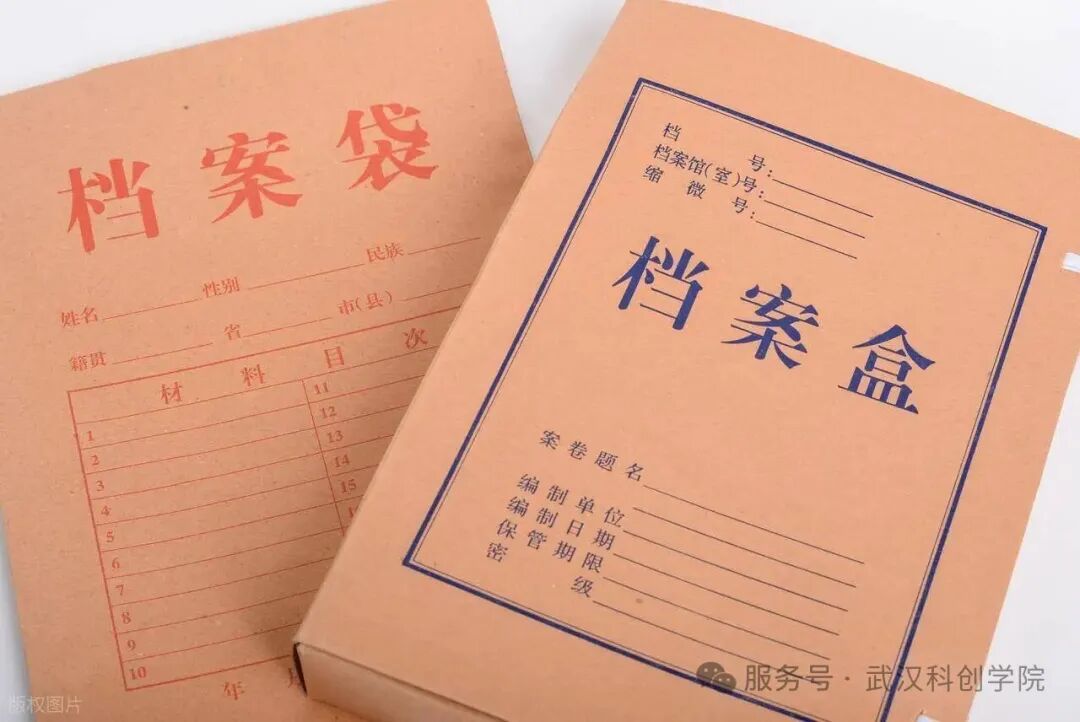 档案袋
姓名 性别 民族
籍贯 省 市(县)
材料目次
1 11
2 12
3 13
4 14
5 15
6 1
7
8
9
10
年
档 号:
档案馆(室)号:
缩微号:
档案盒
案卷题名
编制单位
编制日期
保管期限
密级
版权图片
服务号·武汉科创学院